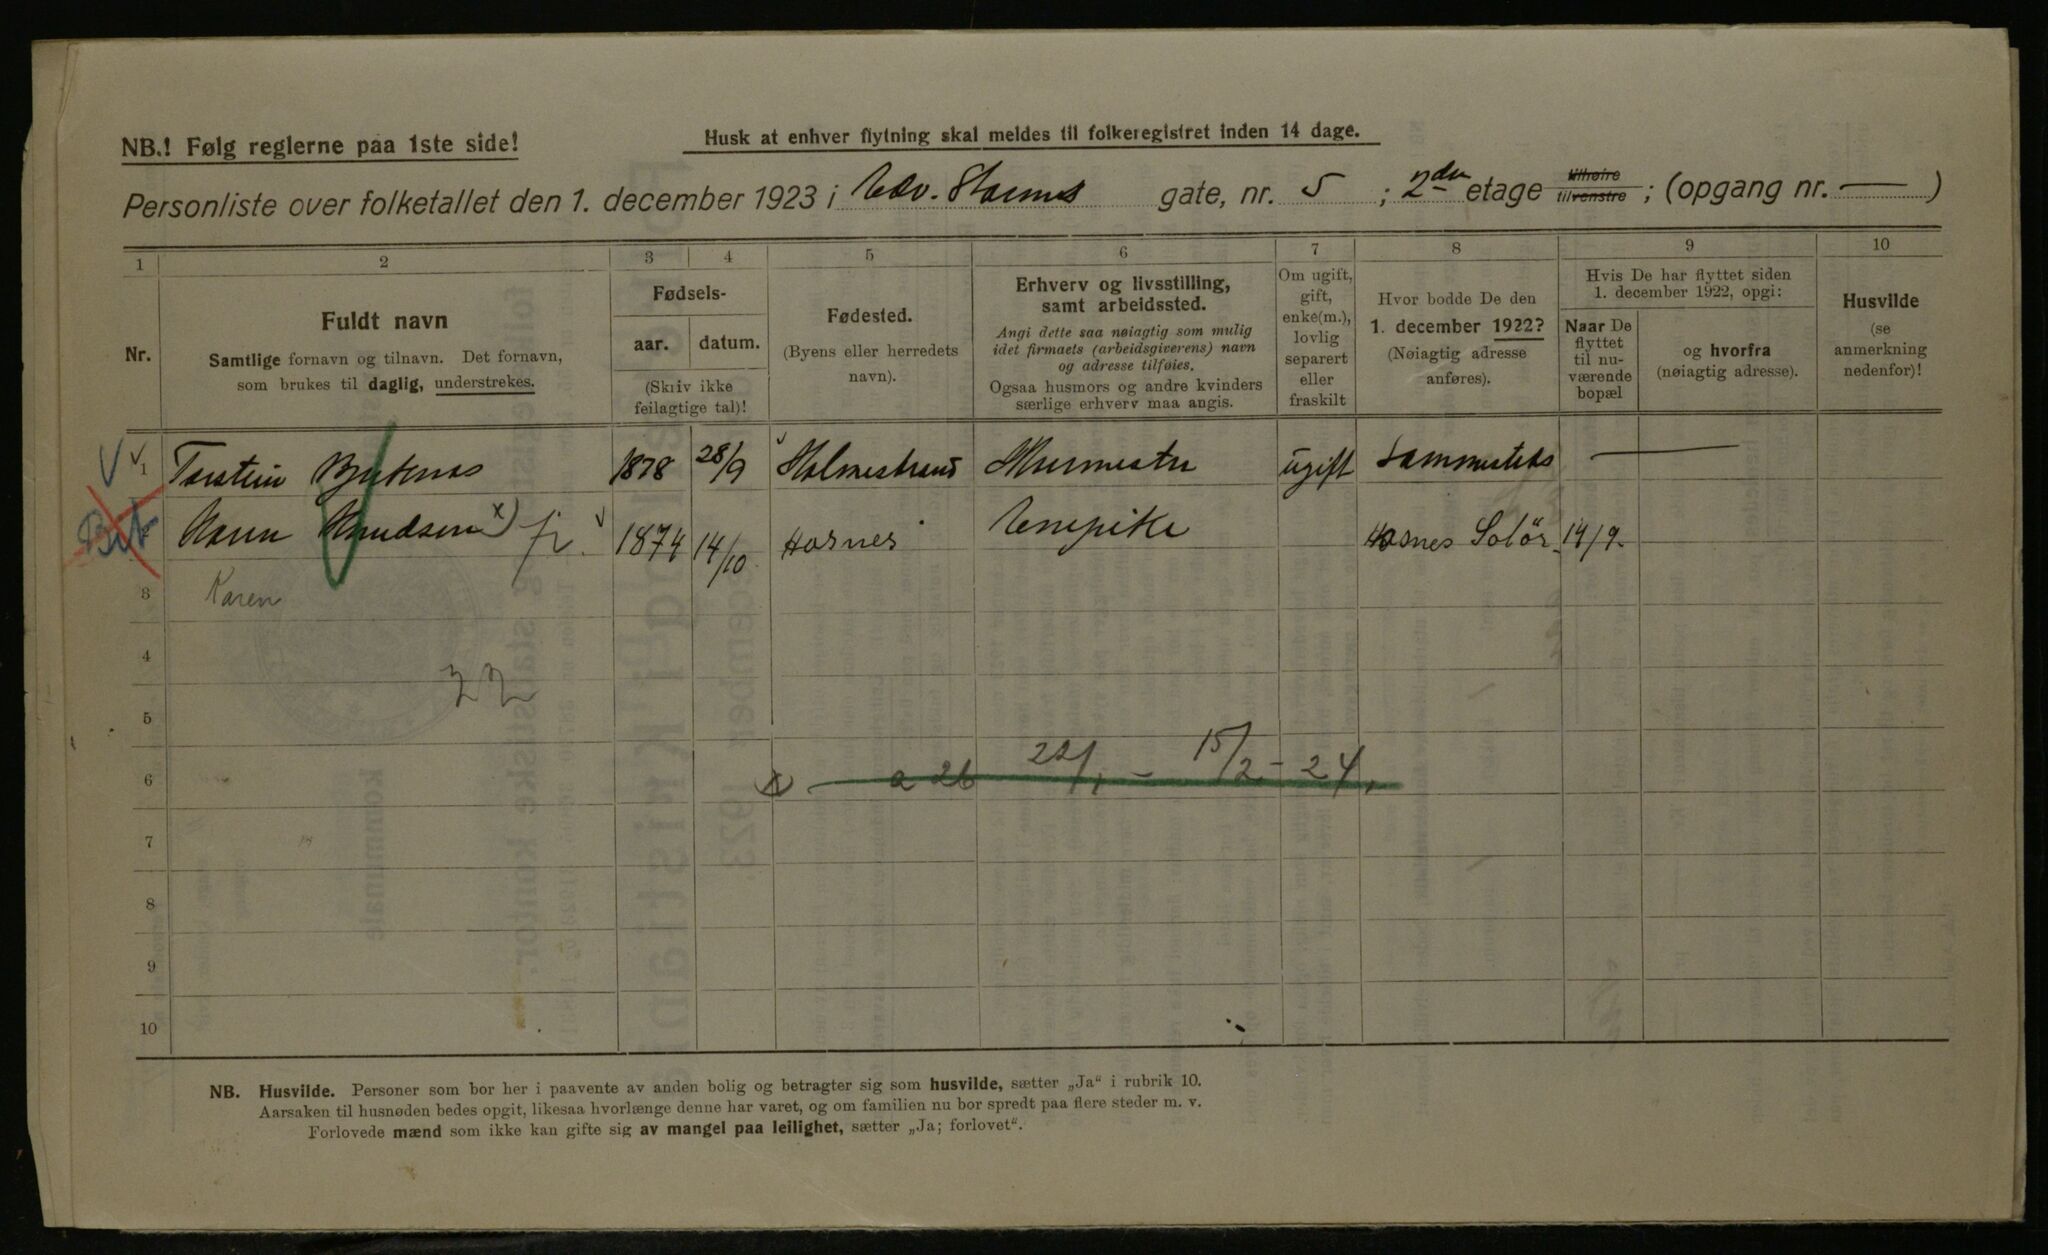 NB.! Følg reglerne paa 1ste side!
Husk at enhver flytning skal meldes til folkeregistret inden 14 dage.
Personliste over folketallet den 1. december 1923 i Edv. Storms gate, nr. 5 ; 2den etage tilhøire tilvenstre ; (opgang nr. — )
1 2 3 4 5 6 7 8 9 10
Nr.
Fuldt navn
Samtlige fornavn og tilnavn. Det fornavn,
som brukes til daglig, understrekes.
Fødsels-
aar. datum.
(Skriv ikke
feilagtige tal)!
Fødested.
(Byens eller herredets
navn).
Erhverv og livsstilling,
samt arbeidssted.
Angi dette saa nøiagtig som mulig
idet firmaets (arbeidsgiverens) navn
og adresse tilføies.
Ogsaa husmors og andre kvinders
særlige erhverv maa angis.
Om ugift,
gift,
enke(m.),
lovlig
separert
eller
fraskilt
Hvor bodde De den
1. december 1922?
(Nøiagtig adresse
anføres).
Hvis De har flyttet siden
1. december 1922, opgi:
Naar De
flyttet
til nu-
værende
bopæl
og hvorfra
(nøiagtig adresse).
Husvilde
(se
anmerkning
nedenfor)!
1 Torstein 1878 28/9 Holmestrand Murmester ugift Sammesteds —
Karen Knudsen x) fr. 1874 14/10 Hasnes Enepike Hasnes Solör 14/9.
3 Karen
4
5
6 x a 26 22/1 – 15/2 – 24.
7
8
9
10
NB. Husvilde. Personer som bor her i paavente av anden bolig og betragter sig som husvilde, sætter „Ja“ i rubrik 10.
Aarsaken til husnøden bedes opgit, likesaa hvorlænge denne har varet, og om familien nu bor spredt paa flere steder m. v.
Forlovede mænd som ikke kan gifte sig av mangel paa leilighet, sætter „Ja; forlovet“.